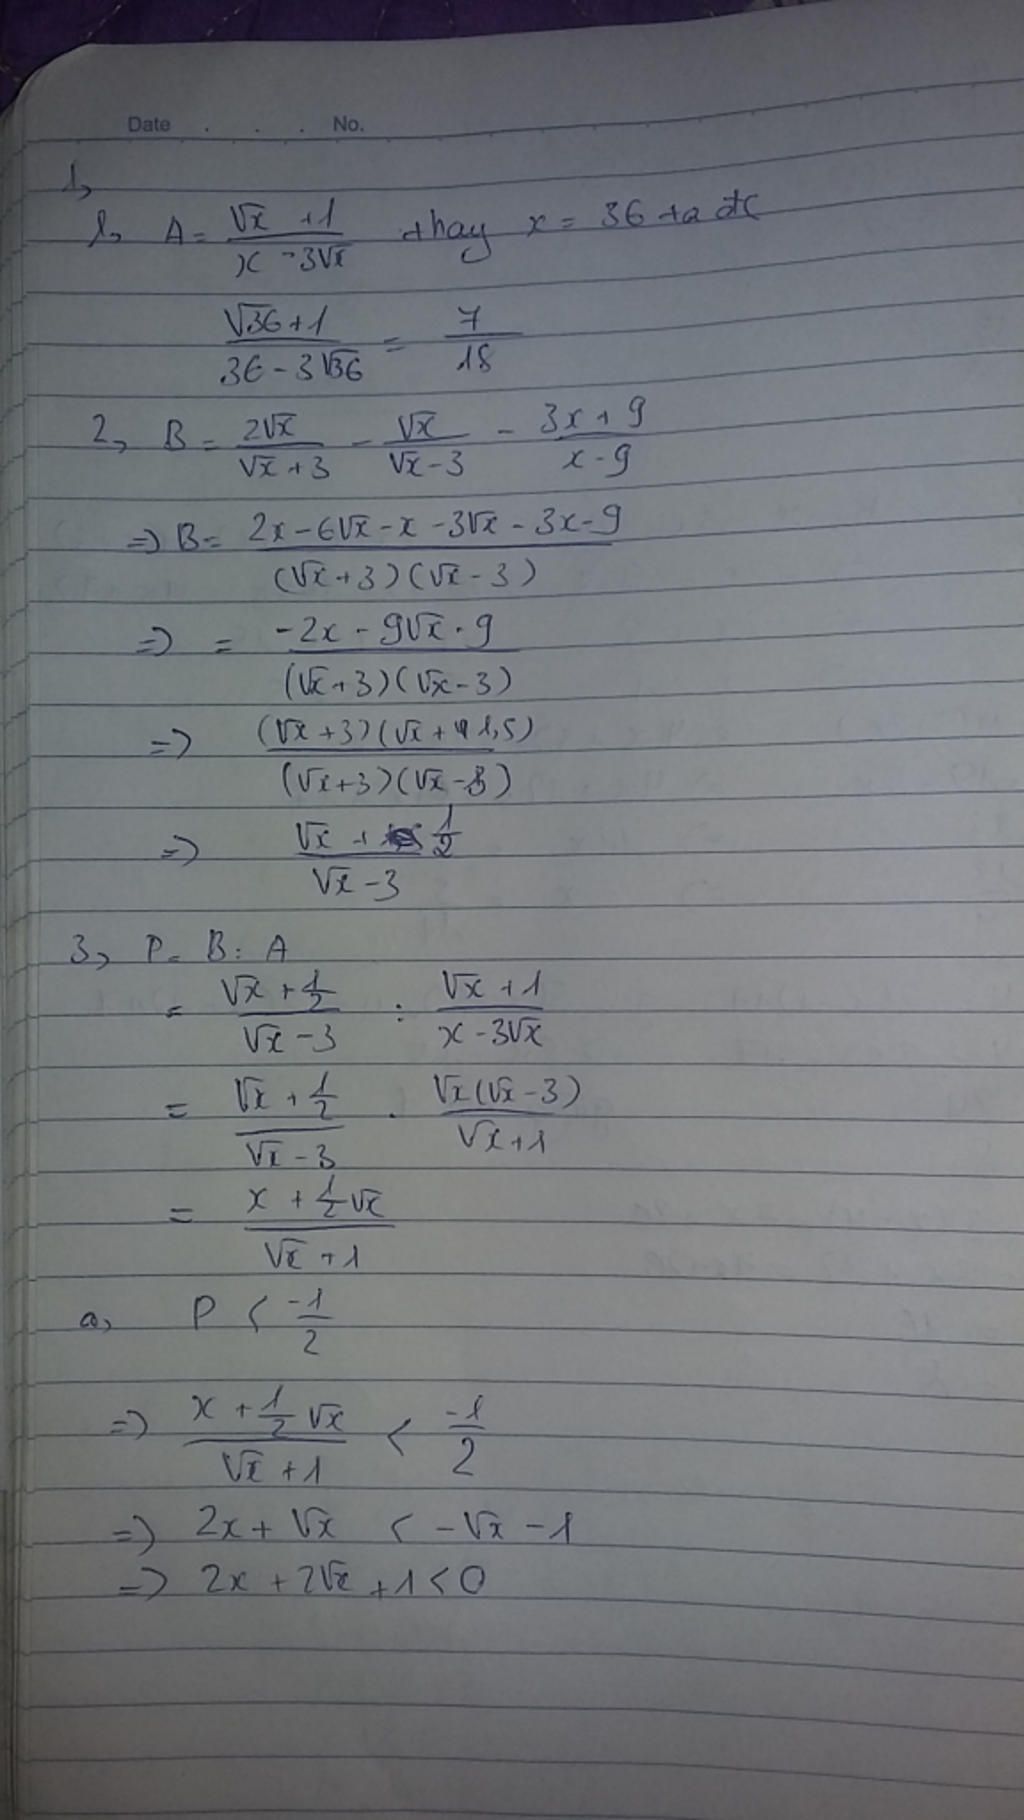 Date . . . No.
1,
1, A = (√x + 1)/(x - 3√x) thay x = 36 ta đc
(√36 + 1)/(36 - 3√36) = 7/18
2, B = 2√x/(√x + 3) - √x/(√x - 3) - (3x + 9)/(x - 9)
=> B = (2x - 6√x - x - 3√x - 3x - 9)/((√x + 3)(√x - 3))
=> = (-2x - 9√x - 9)/((√x + 3)(√x - 3))
=> ((√x + 3)(√x + 1,5))/((√x + 3)(√x - 3))
=> (√x + 1/2)/(√x - 3)
3, P = B : A
= (√x + 1/2)/(√x - 3) : (√x + 1)/(x - 3√x)
= (√x + 1/2)/(√x - 3) . √x(√x - 3)/(√x + 1)
= (x + 1/2 √x)/(√x + 1)
a, P < -1/2
=> (x + 1/2 √x)/(√x + 1) < -1/2
=> 2x + √x < -√x - 1
=> 2x + 2√x + 1 < 0